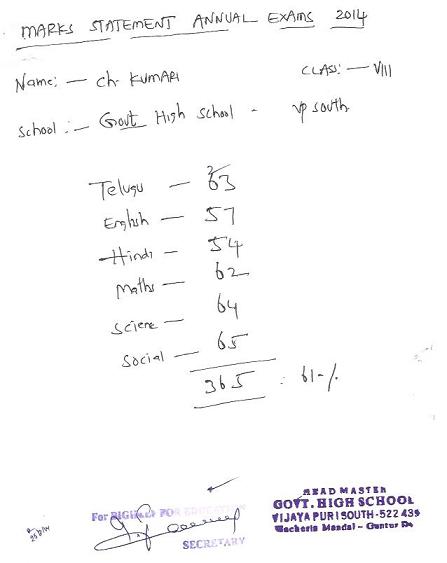 MARKS STATEMENT ANNUAL EXAMS 2014
Name:- Ch. KUMARI CLASS:- VIII
School:- Govt High School - vp south
Telugu - 63
English - 57
Hindi - 54
Maths - 62
Science - 64
Social - 65
365 : 61-/.
For RIGHT FOR EDUCATION
SECRETARY
HEAD MASTER
GOVT. HIGH SCHOOL
VIJAYAPURI SOUTH-522 439
Macherla Mandal - Guntur Dt